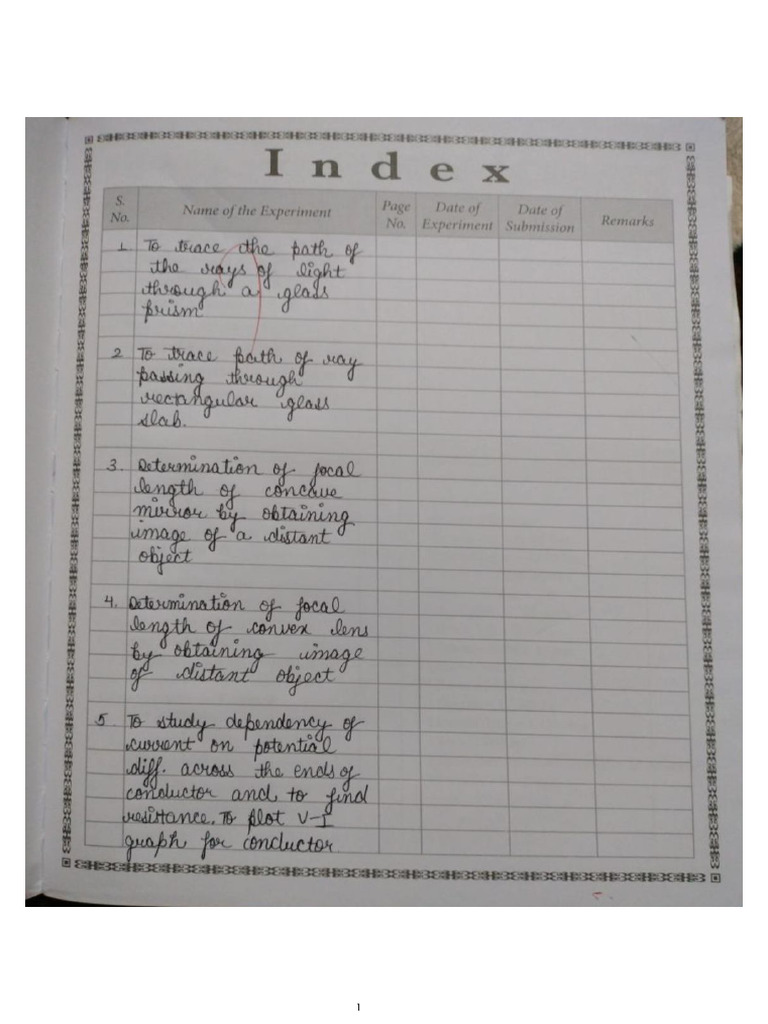 Index
S. No. Name of the Experiment Page No. Date of Experiment Date of Submission Remarks
1. To trace the path of
the rays of light
through a glass
prism
2 To trace path of ray
passing through
rectangular glass
slab.
3. Determination of focal
length of concave
mirror by obtaining
image of a distant
object
4. Determination of focal
length of convex lens
by obtaining image
of distant object
5 To study dependency of
current on potential
diff. across the ends of
conductor and to find
resistance. To plot V-I
graph for conductor
1